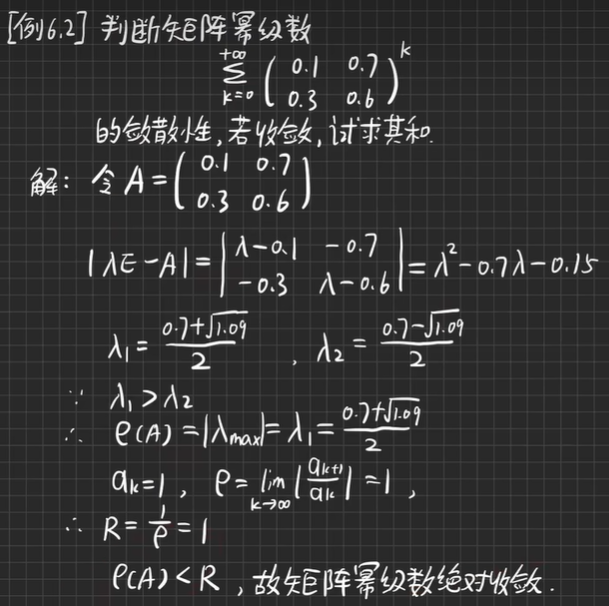 [例6.2] 判断矩阵幂级数
\sum_{k=0}^{+\infty} \begin{pmatrix} 0.1 & 0.7 \\ 0.3 & 0.6 \end{pmatrix}^k
的敛散性,若收敛,试求其和.
解: 令 A = \begin{pmatrix} 0.1 & 0.7 \\ 0.3 & 0.6 \end{pmatrix}
|λE-A| = \begin{vmatrix} λ-0.1 & -0.7 \\ -0.3 & λ-0.6 \end{vmatrix} = λ^2-0.7λ-0.15
λ_1 = \frac{0.7+\sqrt{1.09}}{2} , λ_2 = \frac{0.7-\sqrt{1.09}}{2}
∵ λ_1 > λ_2
∴ ρ(A) = |λ_{max}| = λ_1 = \frac{0.7+\sqrt{1.09}}{2}
a_k=1, ρ = \lim_{k→∞} |\frac{a_{k+1}}{a_k}| = 1 ,
∴ R = \frac{1}{ρ} = 1
ρ(A) < R ,故矩阵幂级数绝对收敛.